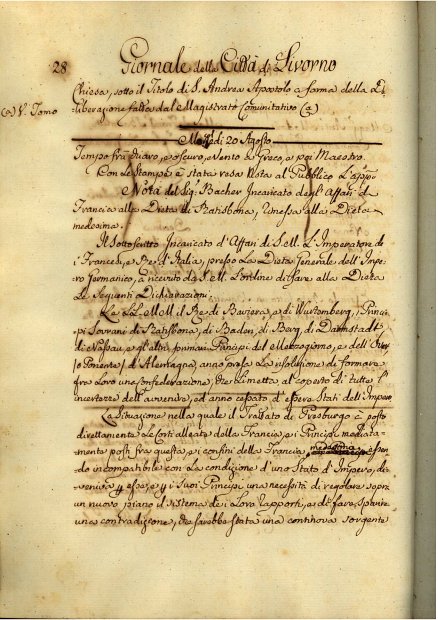 28
Giornale della Città di Livorno
Chiesa, sotto il Titolo di S. Andrea Apostolo a forma della De
liberazione fatta dal Magistrato Comunitativo (a)
(a) V. Tomo
Mercoledì 20 Agosto
Tempo fra chiaro, e oscuro, e vento a Greco, e poi Maestro.
Con le Stampe è stata resa nota al Pubblico L'appre
Nota del Sig.r Bacher Incaricato degl'Affari di
Francia alla Dieta di Ratisbona, rimessa alla Dieta
medesima.
Il Sottoscritto Incaricato d'Affari di S. M. L'Imperatore de
i Francesi, e Re d'Italia, presso La Dieta Generale dell'Impe
ro Germanico, à ricevuto da S. M. L'ordine di fare alla Dieta
Le Seguenti Dichiarazioni.
Le LL. MM. il Re di Baviera, e di Wurtemberg, i Princi
pi Sovrani di Ratisbona, di Baden, di Berg, di Darmstadt,
di Nassau, e gl'altri primari Principi del Mezzogiorno, e dell'Ovest
(o Ponente) d'Alemagna, anno presa La risoluzione di formare
fra Loro una Confederazione, che Li metta al coperto di tutte l'
incertezze dell'avvenire, ed anno cessato d'essere Stati dell'Impero
La Situazione nella quale il Trattato di Presburgo à posto
direttamente Le Corti alleate della Francia, e i Principi mediata-
mente posti fra queste, e i confini della Francia medesima, essen
do incompatibile con La condizione d'uno Stato d'Impero, di
veniva p esse, e p i suoi Principi una necessità di regolare sopra
un nuovo piano il sistema de i Loro rapporti, e di fare sparire
una contradizione, che sarebbe stata una continova sorgente